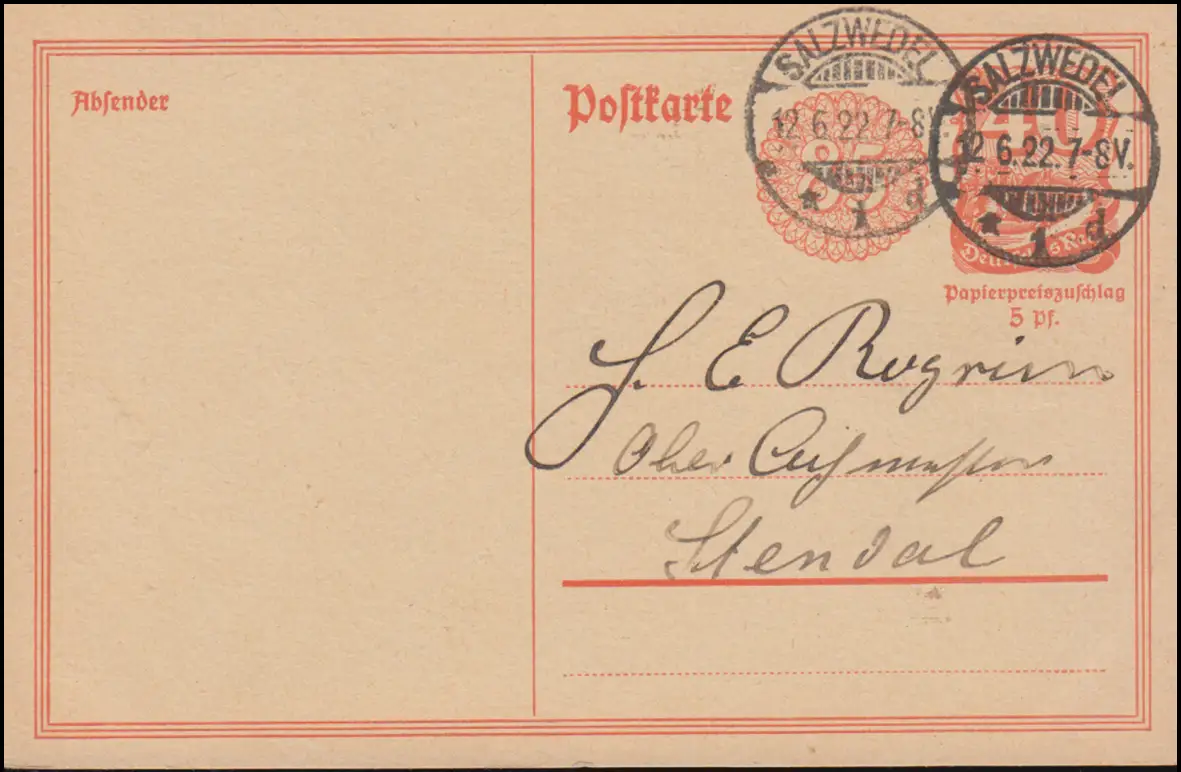 Absender
Postkarte
SALZWEDEL
12.6.22.7-8V.
* 1 d
85
SALZWEDEL
12.6.22.7-8V.
* 1 d
40
Deutsches Reich
Papierpreiszuschlag
5 Pf.
E
Ober
Stendal